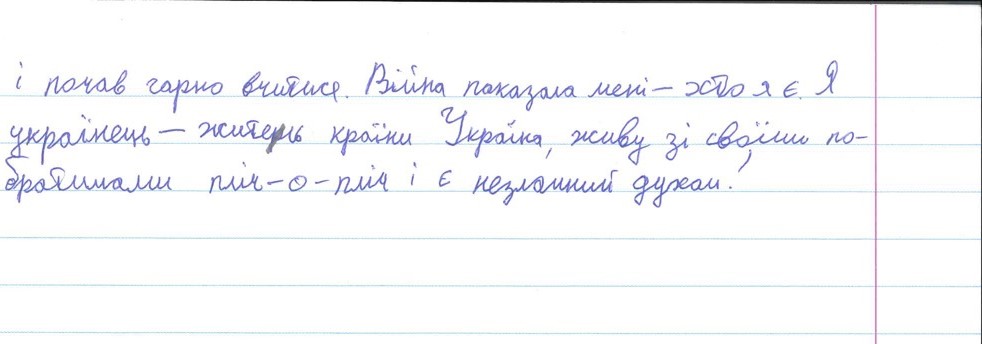 і почав гарно вчитися. Війна показала мені – хто я є. Я
українець – житель країни Україна, живу зі своїми по-
братимами пліч-о-пліч і є незламний духом!